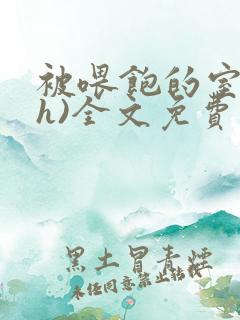 被喂飽的室
h)全文免費
黑土冒青煙
未经同意禁止转载